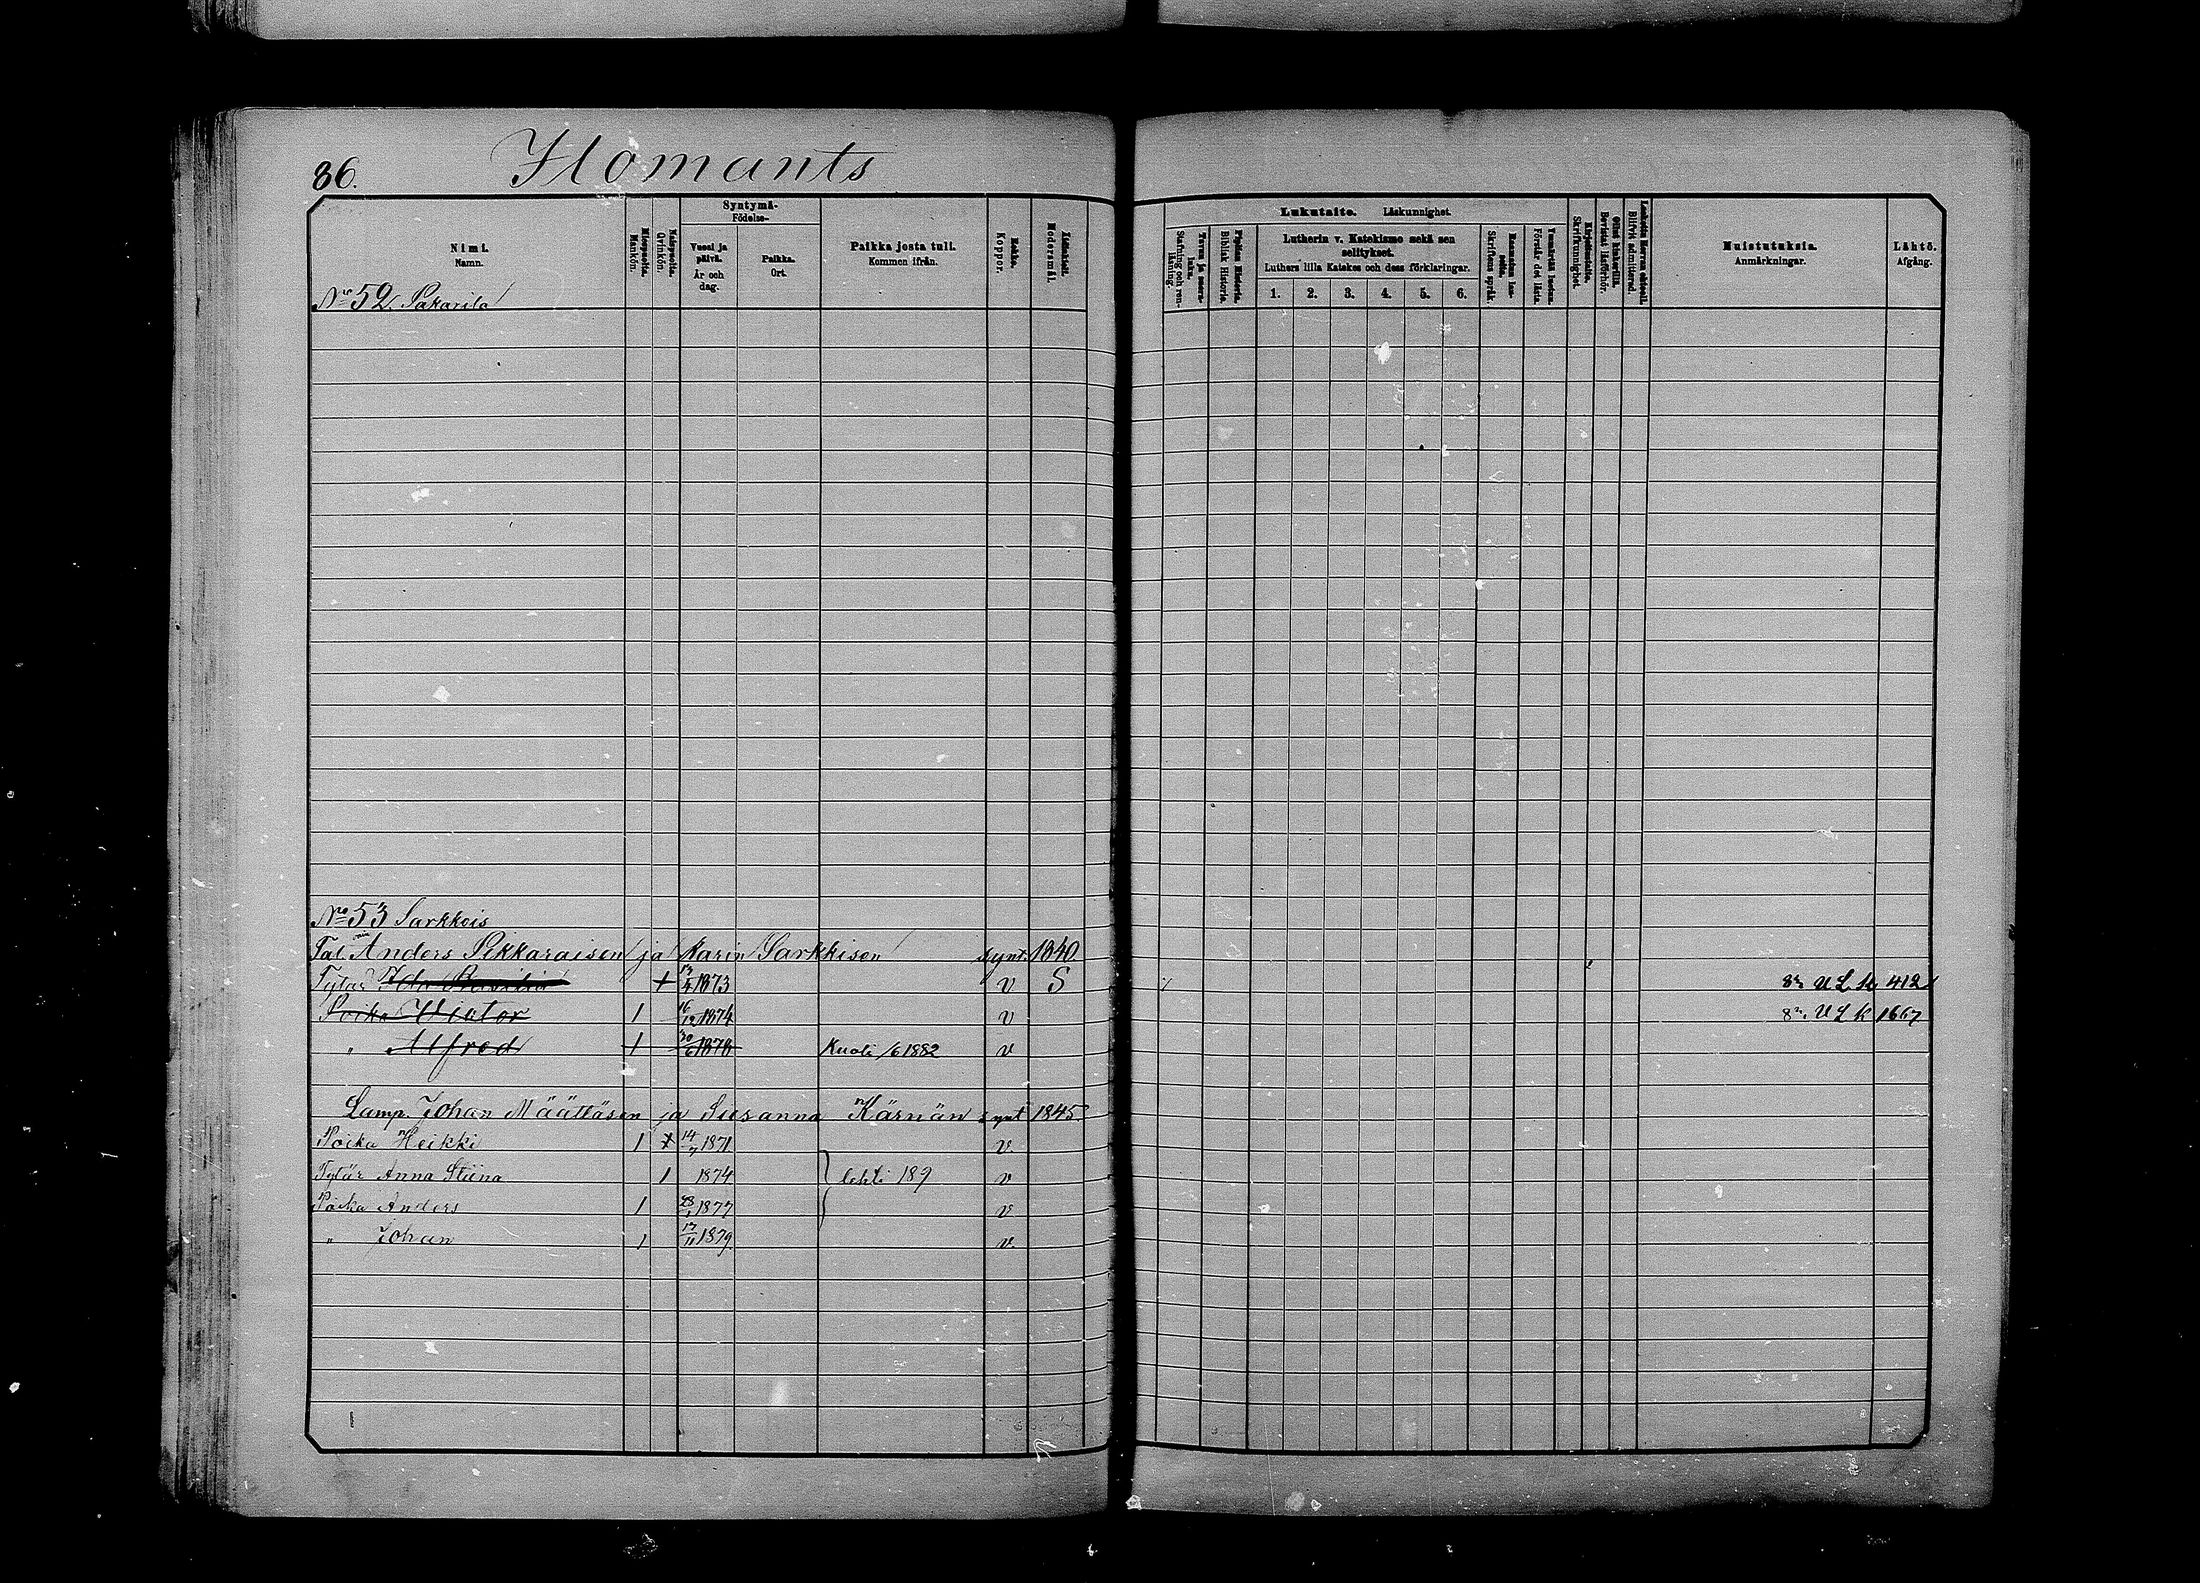 86. Ilomants
Nimi. Namn.
Miespuolia. Mankön.
Naispuolia. Qvinkön.
Syntymä- Födelse-
Vuosi ja päivä. År och dag.
Paikka. Ort.
Paikka josta tuli. Kommen ifrån.
Rokko. Koppor.
Äidinkieli. Modersmål.
Lukutaito. Läskunnighet.
Tavuu ja suoraluku. Stafning och renläsning.
Piplian Historia. Biblisk Historia.
Lutherin v. Katekismo sekä sen selitykset.
Luthers lilla Katekes och dess förklaringar.
1. 2. 3. 4. 5. 6.
Raamatun lauseita. Skriftens språk.
Ymmärtää luetun. Förstår det lästa.
Kirjoitustaito. Skrifkunnighet.
Ollut lukusilla. Bevistat läsförhör.
Laskettu Herran ehtool. Blifvit admitterad.
Muistutuksia. Anmärkningar.
Lähtö. Afgång.
No 52 Pakarila
No 53 Sarkkois
Tal. Anders Pikkaraisen ja Karin Sarkkisen synt. 1840
Tytär Ida 1 13/4 1873 v S U L k 412
Poika Victor 1 16/12 1874 v U L k 1667
" Alfred 1 30/6 1878 Kuoli /6 1882 v
Lamp. Johan Määttäsen ja Susanna Kärnän synt 1845
Poika Heikki 1 14/7 1871 v.
Tytär Anna Stiina 1 1874 lehti 189 v
Poika Anders 1 1877 v
" Johan 1 17/11 1879 v.